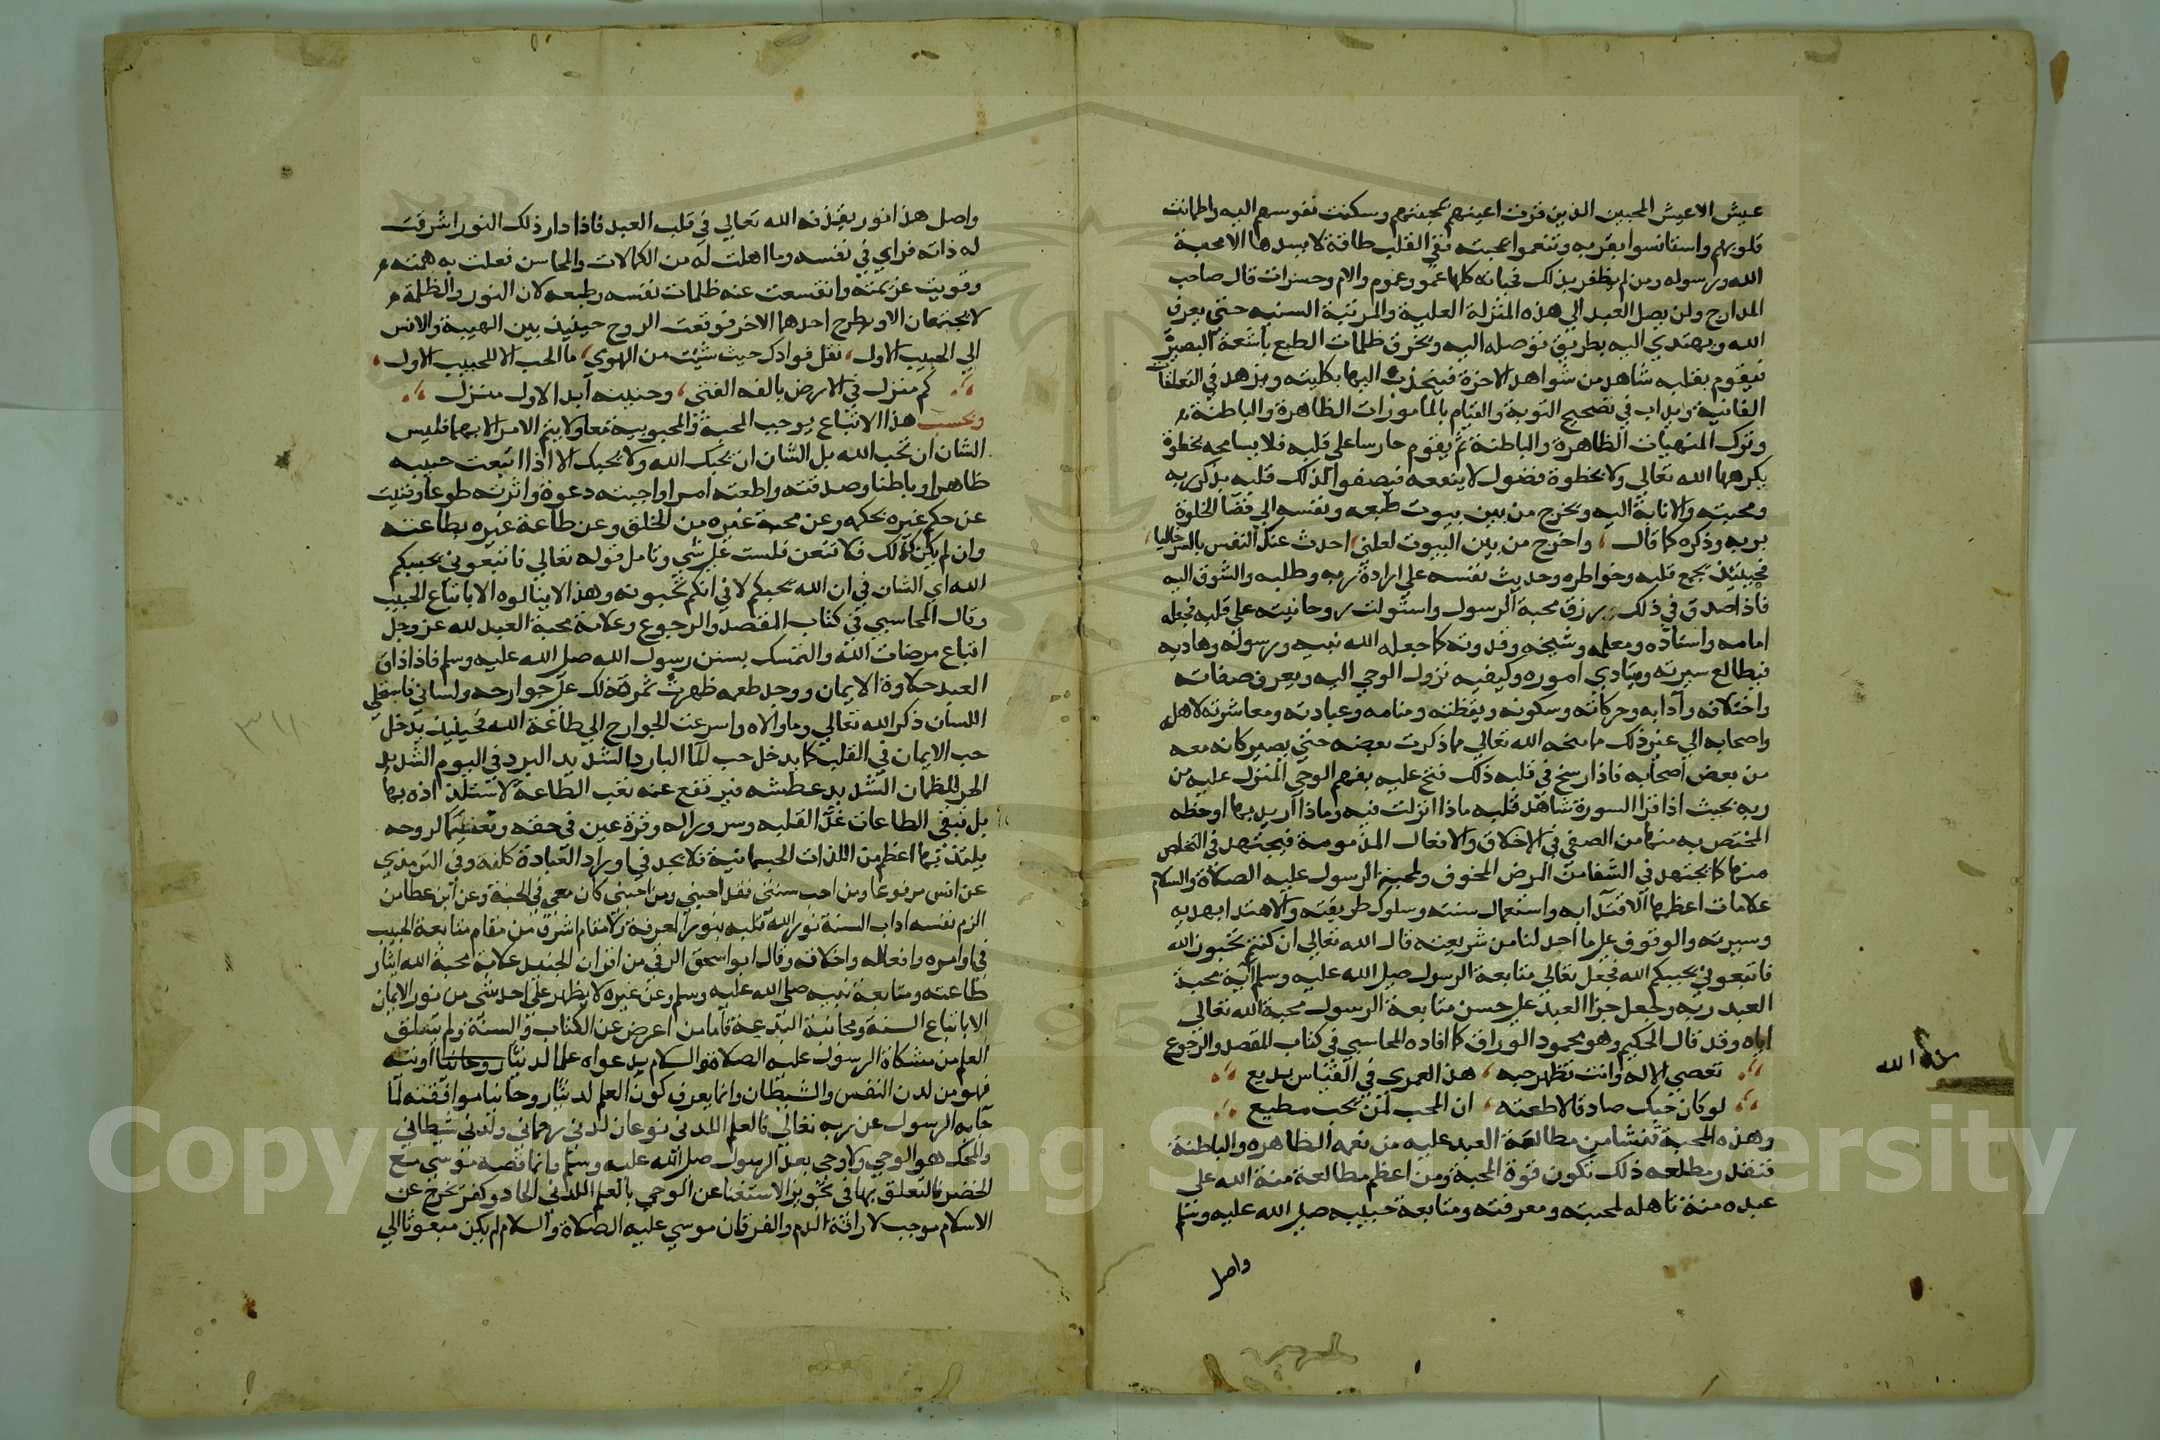 عيش الا عيش المحبين الذين قرت اعينهم بمحبتهم وسكنت نفوسهم اليه واطمانت
قلوبهم واستانسوا بقربه وتنعموا بمحبته ففي القلب طاقة لا يسدها الا محبة
الله ورسوله ومن لم يظفر بذلك فحياته كلها هموم وغموم والام وحسرات قال صاحب
المدارج ولن يصل العبد الي هذه المنزلة العلية والمرتبة السنيه حتي يعرف
الله ويهتدي اليه بطريق توصله اليه ويخرق ظلمات الطبع باشعة البصيرة
فيقوم بقلبه شاهد من شواهد الاخرة فينجذب اليها بكليته ويزهد في التعلقات
الفانية ويداب في تصحيح التوبة والقيام بالمامورات الظاهرة والباطنة
وترك المنهيات الظاهرة والباطنة ثم يقوم حارسا علي قلبه فلا يسامحه بخطرة
يكرهها الله تعالي ولا بخطرة فضول لا ينفعه فيصفوا لذلك قلبه بذكر ربه
ومحبته والانابة اليه ويخرج من بين بيوت طبعه ونفسه الي فضا الخلوة
بربه وذكره كما قال واخرج من بين البيوت لعلني احدث عنك النفس بالسر خاليا
فحينئذ يجمع قلبه وخواطره وحديث نفسه علي ارادة ربه وطلبه والشوق اليه
فاذا صدق في ذلك رزق محبة الرسول واستولت روحانيته علي قلبه فجعله
امامه واستاذه ومعلمه وشيخه وقدوته كما جعله الله نبيه ورسوله وهاديه
فيطالع سيرته ومبادي اموره وكيفيه نزول الوحي اليه ويعرف صفاته
واخلاقه وآدابه وحركاته وسكونه ويقظته ومنامه وعبادته ومعاشرته لاهله
واصحابه الي غير ذلك مما منحه الله تعالي مما ذكرت بعضه حتي يصير كانه معه
من بعض اصحابه فاذا رسخ في قلبه ذلك فتح عليه بفهم الوحي المنزل عليه من
ربه بحيث اذا قرا السورة شاهد قلبه ماذا انزلت فيه وماذا اريد بها وحظه
المختص به منها من الصفي في الاخلاق والافعال المذمومة فيجتهد في التخلص
منها كما يجتهد في الشفا من المرض المخوف ولمحبة الرسول عليه الصلاة والسلام
علامات اعظمها الاقتدا به واستعمال سنته وسلوك طريقته والاهتدا بهديه
وسيرته والوقوف علي ما احد لنا من شريعته قال الله تعالي ان كنتم تحبون الله
فاتبعوني يحببكم الله فجعل تعالي متابعة الرسول صلي الله عليه وسلم آية محبة
العبد ربه وجعل جزا العبد علي حسن متابعة الرسول محبة الله تعالي
اياه وقد قال الحكيم وهو محمود الوراق كما افاده المحاسبي في كتاب القصد والرجوع
تعصي الاله وانت تظهر حبه هذا لعمري في القياس بديع
لو كان حبك صادقا لاطعته ان المحب لمن يحب مطيع
وهذه المحبة تنشا من مطالعة العبد عليه من نعمه الظاهره والباطنة
فبقدر مطلعه ذلك تكون قوة المحبة ومن اعظم مطالعة منة الله علي
عبده منة تاهله لمحبته ومعرفته ومتابعة حبيبه صلي الله عليه وسلم
واصل
واصل هذا نور يقذفه الله تعالي في قلب العبد فاذا دار ذلك النور اشرقت
له ذاته فراي في نفسه وما اهلت له من الكمالات والمحاسن فعلت به همته
وقويت عزيمته وانقسعت عنه ظلمات نفسه وطبعه لان النور والظلمة
لا يجتمعان الا ويطرح احدهما الاخر فوقعت الروح حينيذ بين الهيبة والانس
الي الحبيب الاول نقل فوادك حيث شئت من الهوي ما الحب الا للحبيب الاول
كم منزل في الارض يالفه الفتى وحنينه ابدا لاول منزل
وبحسب هذا الاتباع يوجب المحبة والمحبوبية معا ولا يتم الامر الا بهما فليس
الشان ان تحب الله بل الشان ان يحبك الله ولا يحبك الا اذا اتبعت حبيبه
ظاهرا وباطنا وصدقته واطعته امرا واجبته دعوة واثرته طوعا وفنيت
عن حكم غيره بحكمه وعن محبة غيره من الخلق وعن طاعة غيره بطاعته
وان لم يكن ذلك فلا تتعن فلست علي شي وتامل قوله تعالي فاتبعوني يحببكم
الله اي الشان في ان الله يحبكم لا في انكم تحبونه وهذا لا ينالوه الا باتباع الحبيب
وقال المحاسبي في كتاب القصد والرجوع وعلامة محبة العبد لله عز وجل
اتباع مرضات الله والتمسك بسنن رسول الله صلي الله عليه وسلم فاذا ذاق
العبد حلاوة الايمان ووجد طعمه ظهرت ثمرة ذلك علي جوارحه ولسانه فاستحلي
اللسان ذكر الله تعالي وما والاه واسرعت الجوارح الي طاعة الله فحينيذ يدخل
حب الايمان في القلب كما يدخل حب الما البارد الشديد البرد في اليوم الشديد
الحر للظمان الشديد عطشه فيرتفع عنه تعب الطاعة لاستلذاذه بها
بل تبقي الطاعات غذا لقلبه وسرورا له وقرة عين في حقه ونعيما لروحه
يلتذ بها اعظم من اللذات الجسمانية فلا يجد في اوراد العبادة كلفة وفي الترمذي
عن انس مرفوعا ومن احب سنتي فقد احبني ومن احبني كان معي في الجنة وعن ابن عطا من
الزم نفسه اداب السنة نور الله قلبه بنور المعرفة ولا مقام اشرف من مقام متابعة الحبيب
في اوامره وافعاله واخلاقه وقال ابو اسحق الرقي من اقران الجنيد علامة محبة الله ايثار
طاعته ومتابعة نبيه صلي الله عليه وسلم وعن غيره لا يظهر علي احد شي من نور الايمان
الا باتباع السنة ومجانبة البدعة فاما من اعرض عن الكتاب والسنة ولم يتلق
العلم من مشكاة الرسول عليه الصلاة والسلام بدعواه علما لدنيا روحانيا اوتيه
فهو من لدن النفس والشيطان وانما يعرف كون العلم لدنيا روحانيا موافقته لما
جا به الرسول عن ربه تعالي فالعلم اللدني نوعان لدني رحماني ولدني شيطاني
والمحك هو الوحي ولا وحي بعد الرسول صلي الله عليه وسلم واما قصة موسي مع
الخضر فالتعلق بها في تجويز الاستغنا عن الوحي بالعلم اللدني الحاد وكفر يخرج عن
الاسلام موجب لاراقة الدم والفرق ان موسي عليه الصلاة والسلام لم يكن مبعوثا الي
Copyright © King Saud University